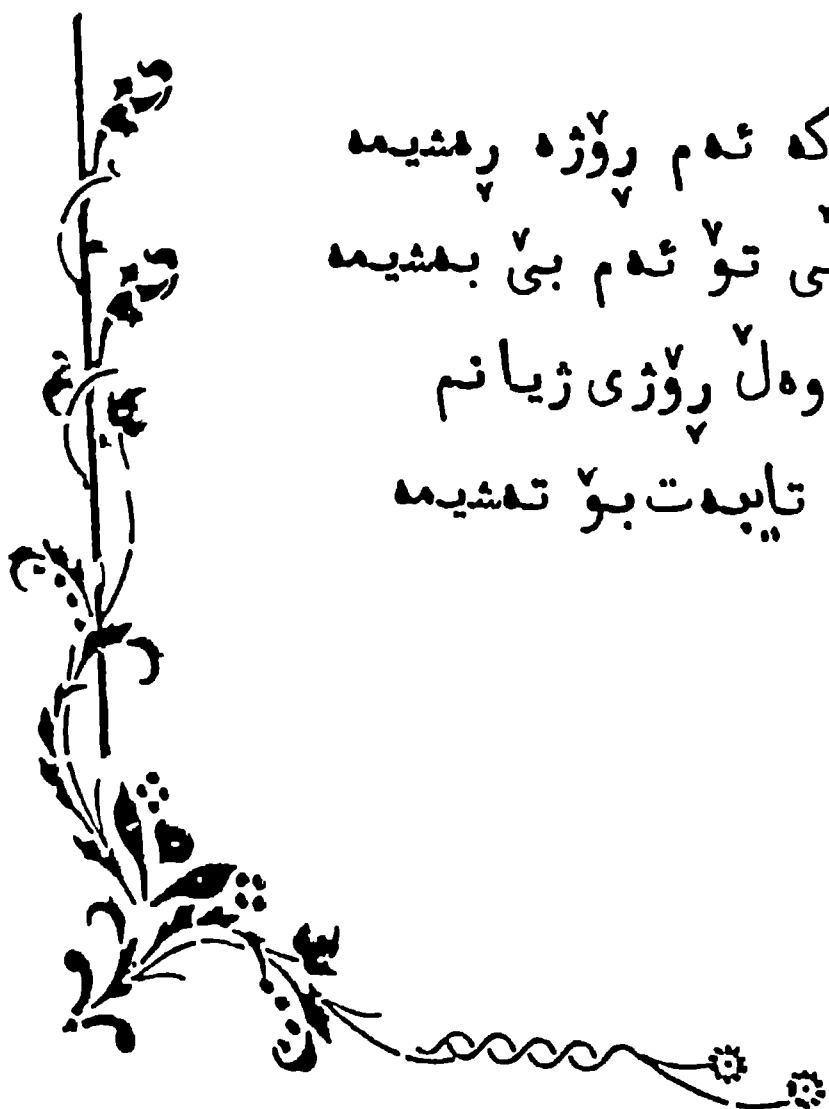 که ئەم ڕۆژە ڕەشیمە
تۆ ئەم بێ بەشیمە
وەڵ ڕۆژی ژیانم
تایبەت بۆ تەشیمە